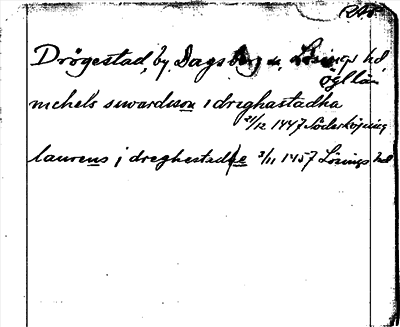 Drögestad, by, Dagsberg sn, Lösings hd,
ögl län
nichels siwardsson i dreghastadha
21/12 1447 Söderköping
laurens j dreghestadhe 3/11 1457 Lösings hd